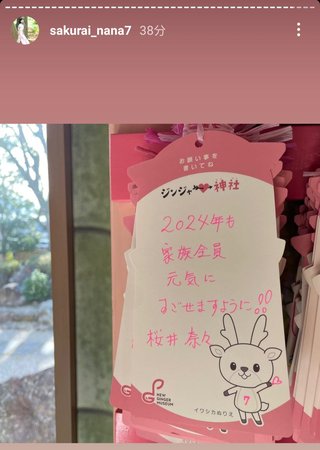 sakurai_nana7 38分
お願い事を
書いてね
ジンジャー神社
2024年も
家族全員
元気に
すごせますように!!
桜井奈々
7
NEW
GINGER
MUSEUM
イワシカぬりえ